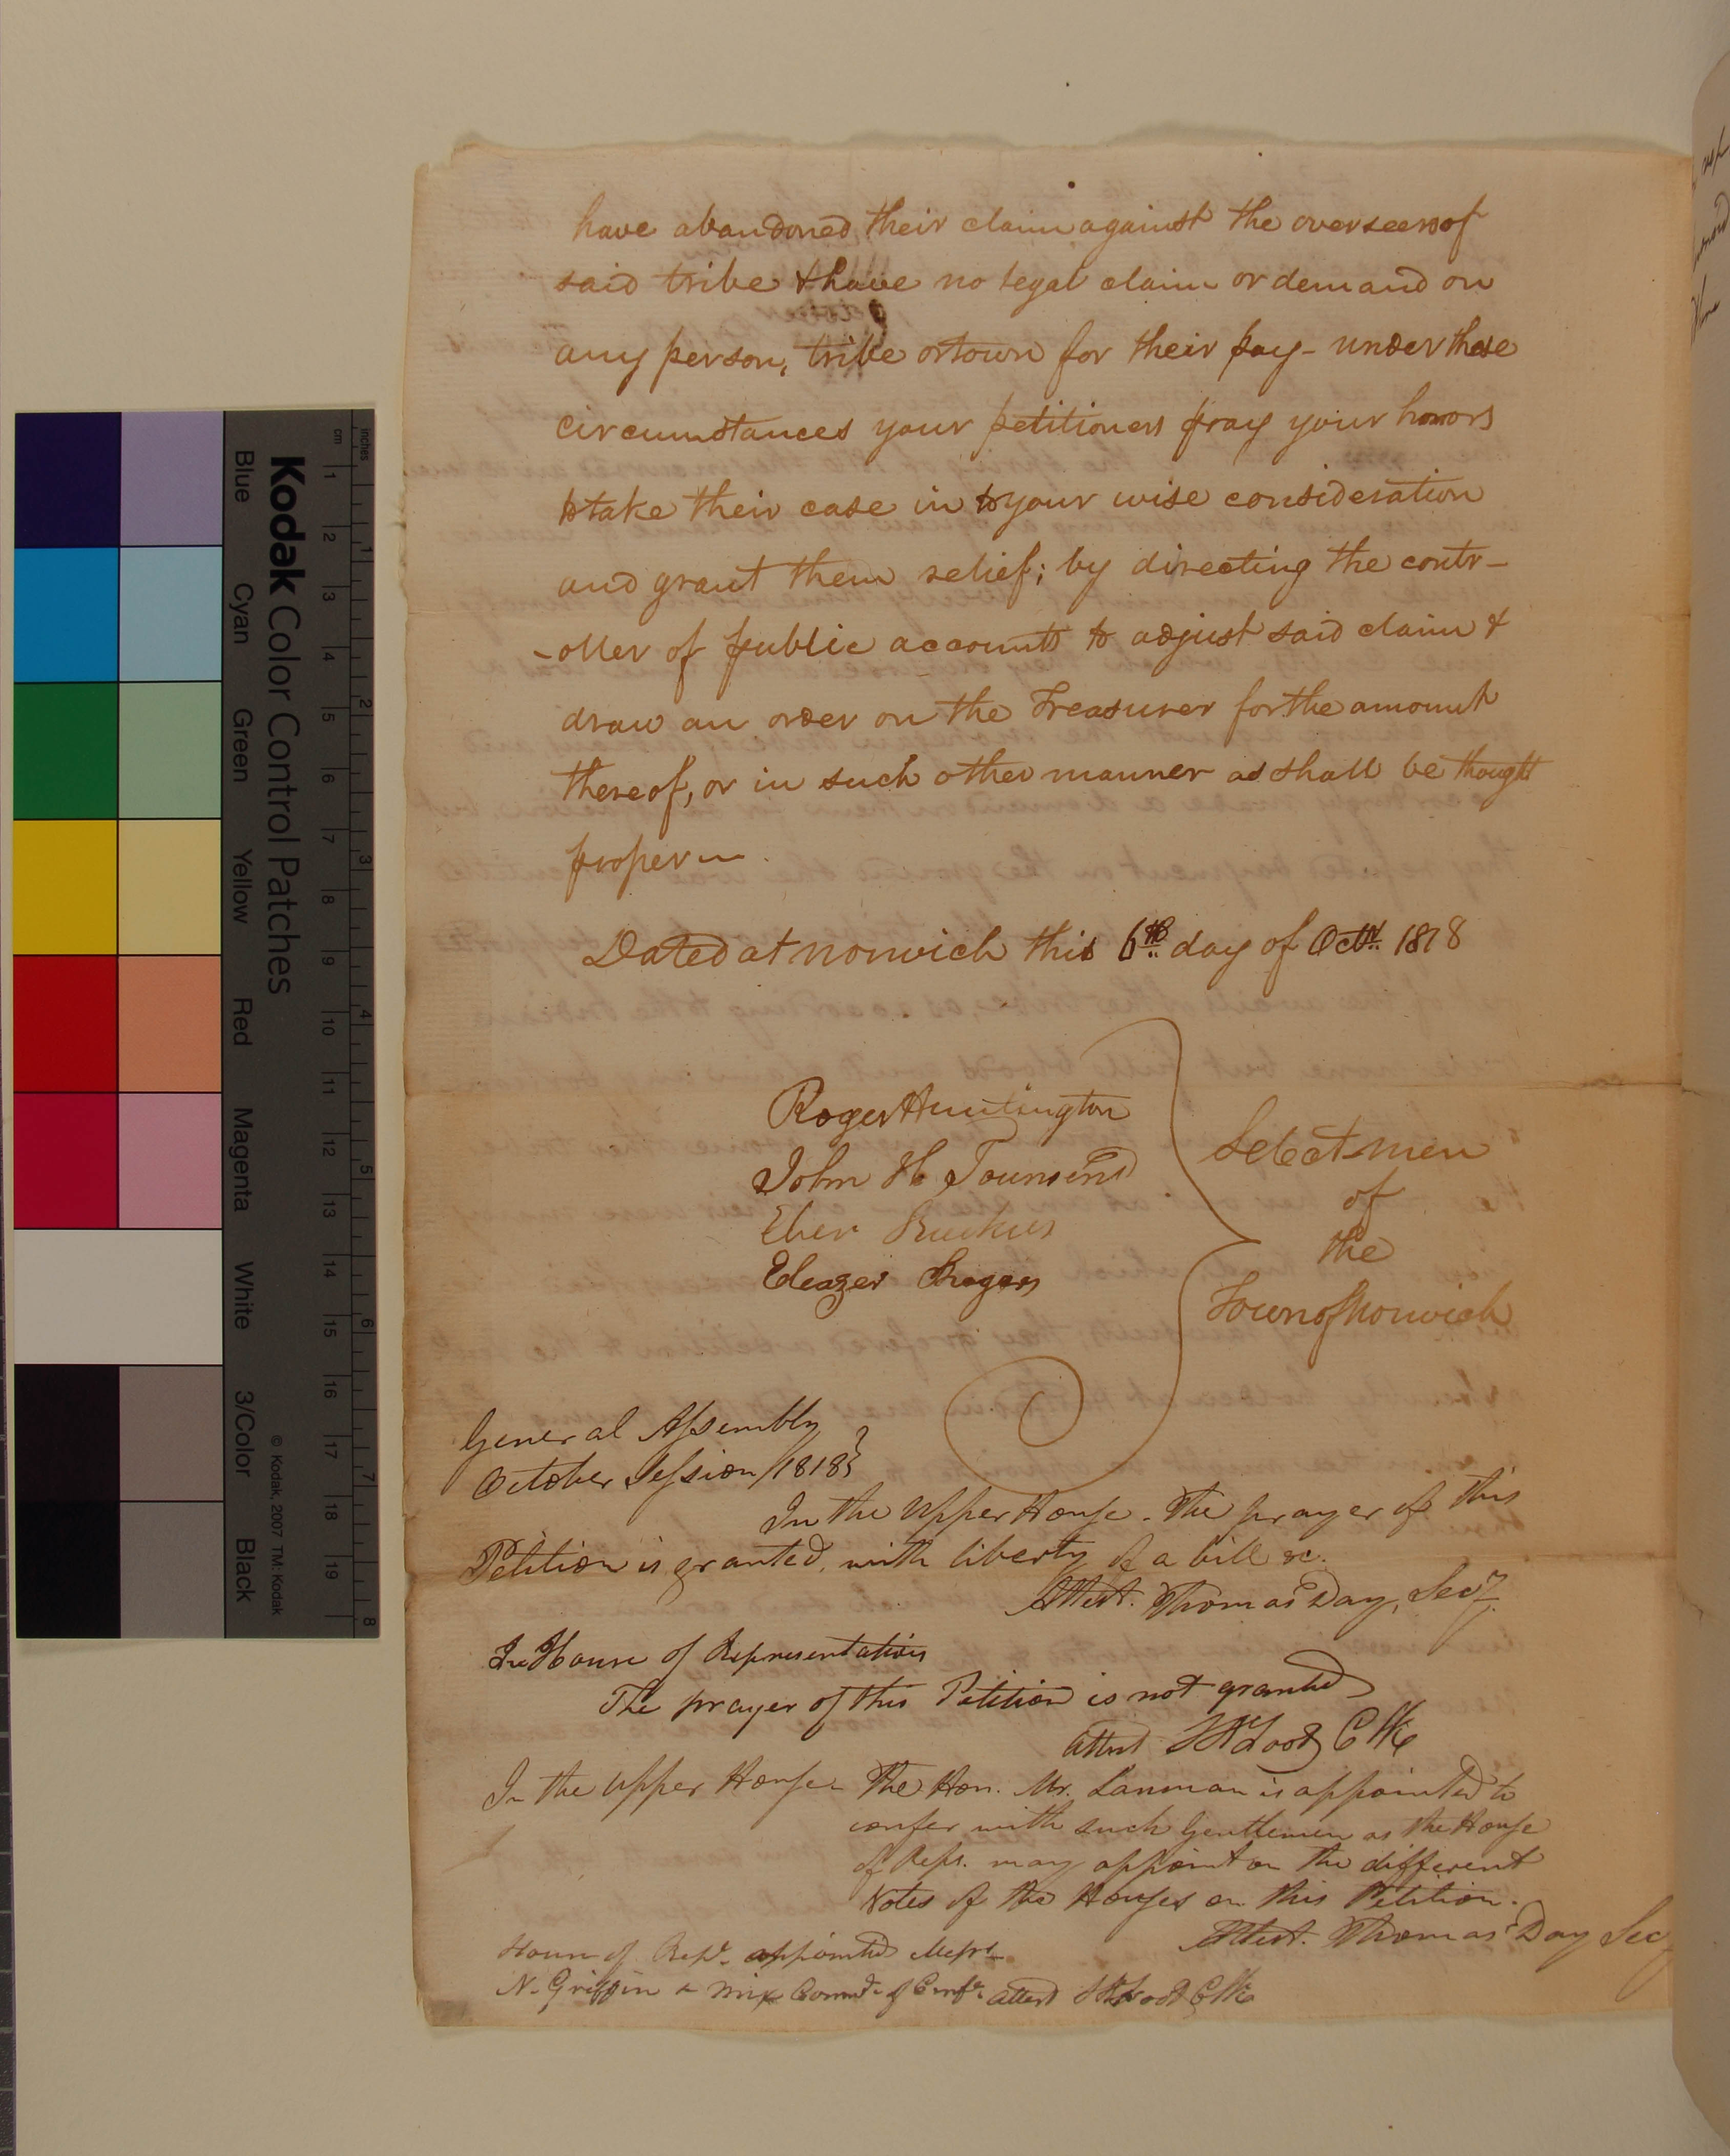 have abandoned their claim against the overseers of
said tribe & have no legal claim or demand on
any person, tribe or town for their pay - under these
circumstances your petitioners pray your honors
to take their case in to your wise consideration
and grant them relief; by directing the contr-
-oller of public accounts to adjust said claim &
draw an order on the Treasurer for the amount
thereof, or in such other manner as shall be thought
proper
Dated at Norwich this 6th day of Octr. 1818
Roger Huntington
John H Townsend
Eber Backus
Eleazer Rogers
Select men
of
the
Town of Norwich
General Assembly
October Session 1818
In the Upper House. The prayer of this
Petition is granted, with liberty of a bill &c.
Attest. Thomas Day, Secy.
In House of Representatives
The prayer of this Petition is not granted
attest Clk
In the Upper House The Hon. Mr. Lanman is appointed to
confer with such Gentlemen as the House
of Reps. may appoint on the different
Votes of the Houses on this Petition.
Attest. Thomas Day Sec
House of Reps. appointed Messrs
N. Griffin & Mix Commee. of Confe. attest Clk
Kodak Color Control Patches
Blue Cyan Green Yellow Red Magenta White 3/Color Black
© Kodak, 2007 TM: Kodak
inches 1 2 3 4 5 6 7 8
cm 1 2 3 4 5 6 7 8 9 10 11 12 13 14 15 16 17 18 19